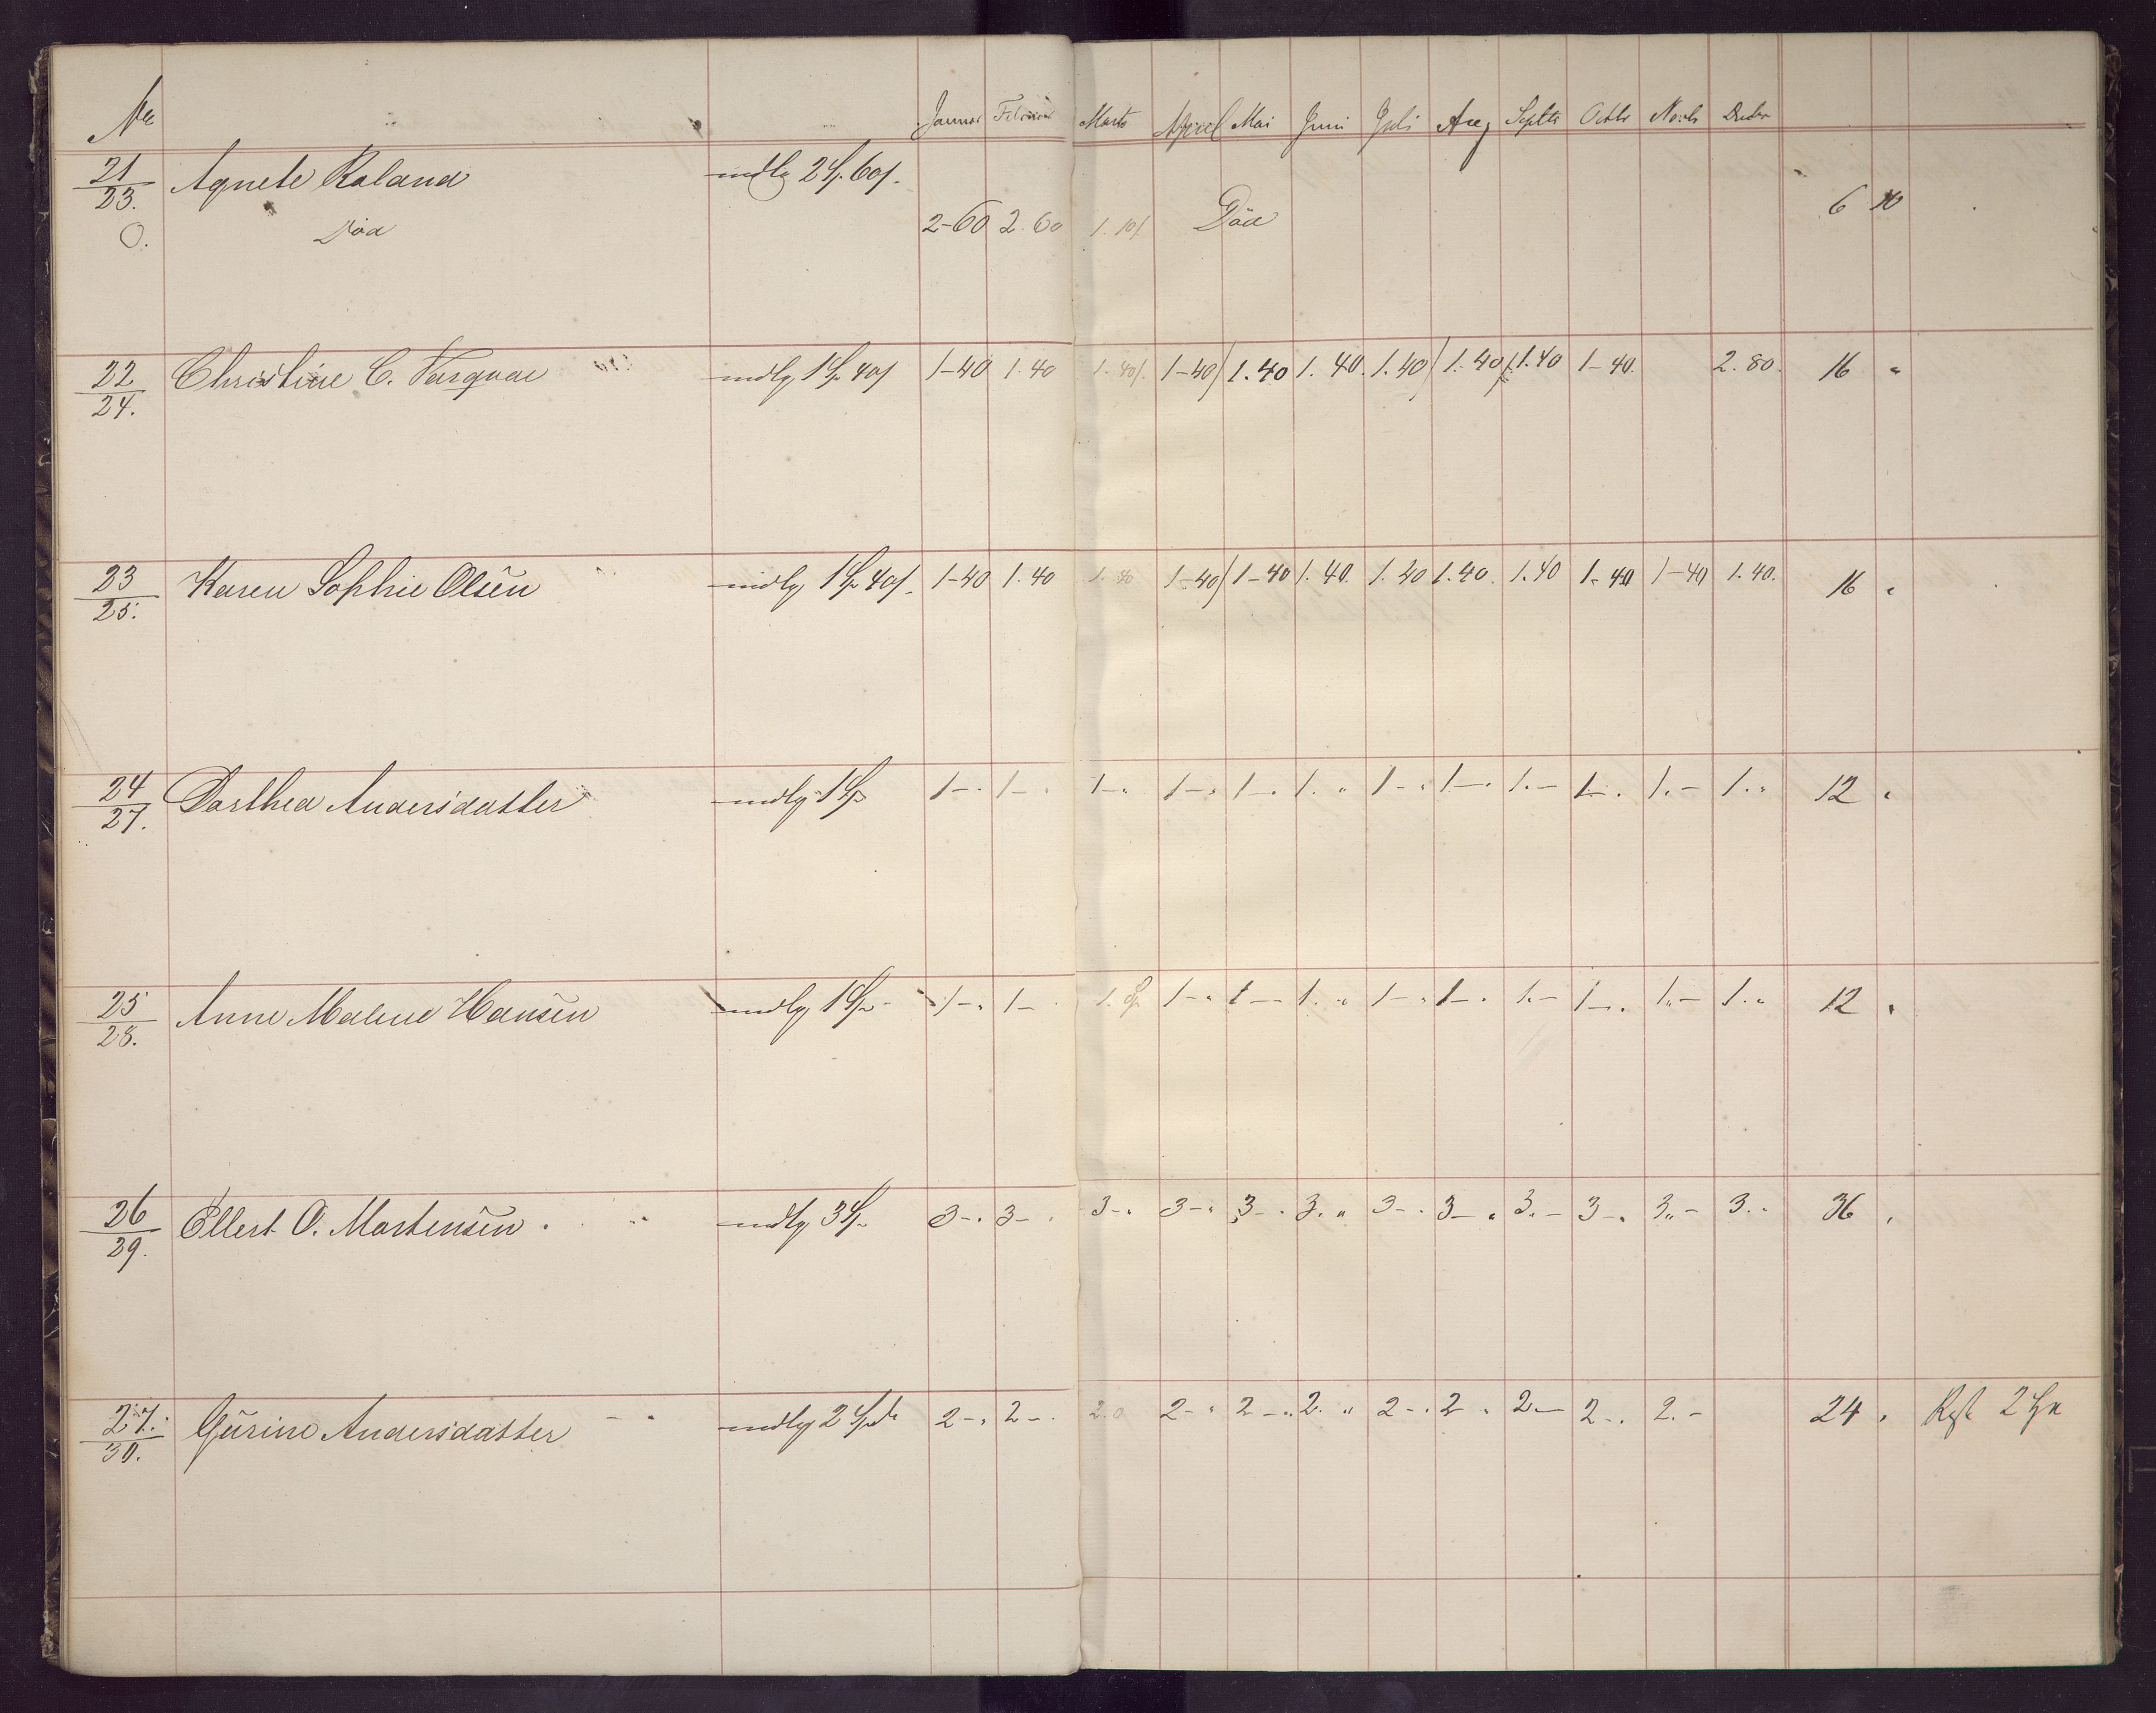 No Januar Februar Marts April Mai Juni Juli Aug Septbr Octbr Novb Decbr
21/23. Agnete Roland mdlg 2 Sp. 60 s. 6 10
0. Död 2-60 2.60 1.10s Död
22/24. Christine C. mdlg 1 Sp 40 s 1-40 1.40 1.40s. 1-40s 1.40 1.40. 1.40s 1.40s 1.40 1-40. 2.80. 16 "
23/25. Karen Sophie Olsen mdlg 1 Sp 40 s. 1-40 1.40 1.40 1-40s 1-40 1.40. 1.40 1.40. 1.40 1-40 1-40 1.40. 16 "
24/27. Dorthea Andersdatter mdlg 1 Sp 1-. 1-. 1-" 1-" 1-. 1. " 1-" 1-. 1.- 1-. 1.- 1." 12 "
25/28. Anne Malene Hansen mdlg 1 Sp- 1-" 1-. 1. Sp. 1-" 1-. 1. " 1-" 1-. 1.- 1-. 1"- 1." 12 "
26/29. Ellert O. Mortensen. mdlg 3 Sp 3-. 3-. 3-. 3-" 3-. 3. " 3-. 3-" 3.- 3-. 3"- 3." 36 "
27./30. Gurine Andersdatter mdlg 2 Spd 2-. 2-. 2.0 2-" 2-" 2. " 2-. 2 " 2.- 2-. 2.- 24 " Rest 2 Sp